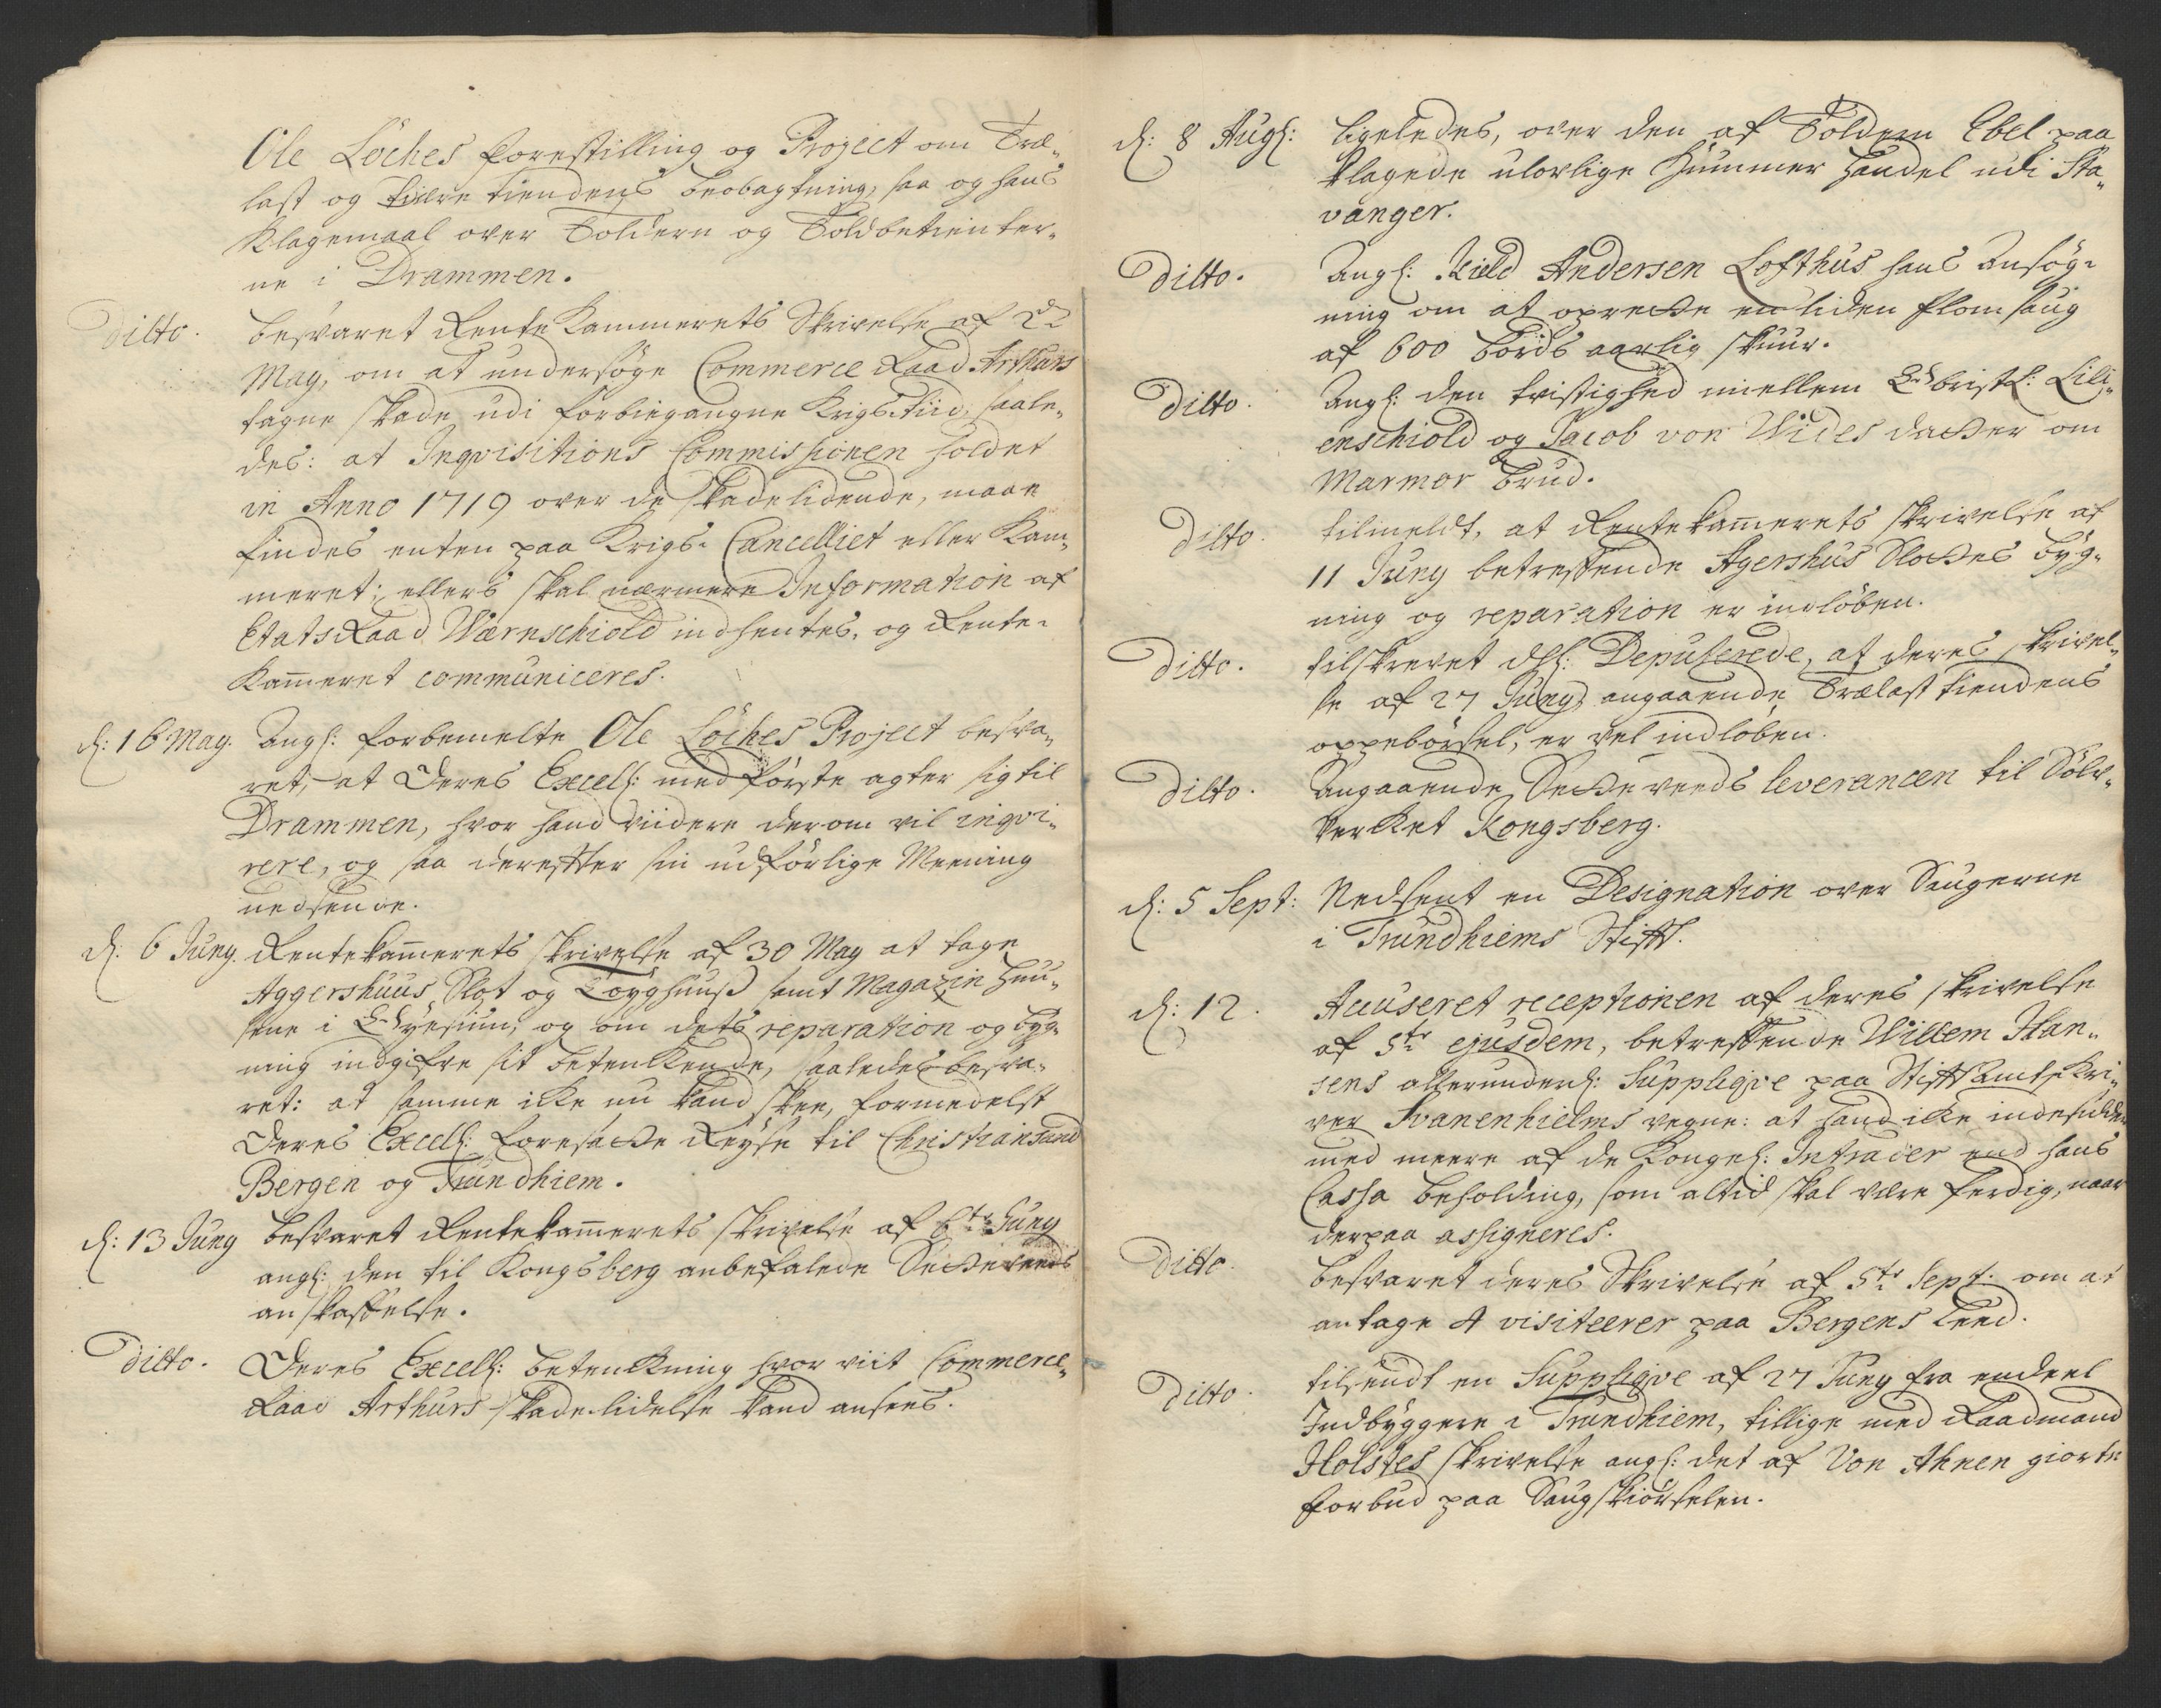 Ole Löches forestilling og Project om Træ-
last og tiære tiendens beobagtning, saa og hans
Klagemaal over Toldern og Toldbetienter-
ne i Drammen.
Ditto. besvaret RenteKammerets Skrivelse af 2d
May, om at undersöge Commerce Raad Arthurs
tagne skade udi forbiegangne Krigs-tiid, saale-
des: at Inqvisitions Commissionen holdet
in Anno 1719 over de skadelidende, maae
findes enten paa Krigs-Cancelliet eller Kam-
meret; ellers skal nærmere Information af
Etats Raad Wærnschiold indhentes, og Rente-
Kammeret communiceres.
d: 16 May. Angl: forbemelte Ole Löches Project besva-
ret, at Deres Excell: med förste agter sig til
Drammen, hvor hand viidere derom vil inqvi-
rere, og saa derefter sin udförlige Meening
nedsende.
d: 6 Juny. Rentekammerets skrivelse af 30 May at tage
Aggershuus Slot og Töyghuus samt Magazin Huu-
sene i øyesiun, og om dets reparation og byg-
ning indgifve sit betenkende, saaledes besva-
ret: at samme icke nu kand skee, formedelst
Deres Excell: foresatte Reyse til Christiansand
Bergen og Trundhiem.
d: 13 Juny besvaret Rentekammerets skrivelse af 6te Juny
angl: den til Kongsberg anbefalede Setteveeds
anskaffelse.
Ditto. Deres Excell: betenkning hvor viit Commerce-
Raad Arthurs skade-lidelse kand ansees.
d: 8 Augl: ligeledes, over den af Toldern Ebel paa
klagede ulovlige Hummer Handel udi Sta-
vanger.
Ditto. Angl: Kield Andersen Lofthus hans ansög-
ning om at oprette en liden flomsaug
af 600 bords aarlig skuur.
Ditto. Angl: den tvistighed miellem Obristl: Lili-
enschiold og Jacob von Wides datter om
Marmor brud.
Ditto. tilmeldt, at Rentekammerets skrivelse af
11 Juny betreffende Agershus Slottes byg-
ning og reparation er indlöben.
Ditto. tilskrevet dhl: Deputerede, at deres skrivel-
se af 27 Juny angaaende Trælast tiendens
oppebörsel, er vel indlöben.
Ditto. Angaaende Setteveeds leverancen til Sölv-
verket Kongsberg.
d: 5 Sept: Nedsent en Designation over Saugerne
i Trundhiems Stift.
d: 12. Accuseret receptionen af deres skrivelse
af 5te ejusdem, betreffende Willem Han-
sens allerunderd: Suppliqve paa Stift Amt skri-
ver Svanenhielms vegne: at hand icke indesidder
med meere af de Kongel: Intrader end hans
Cassa beholding, som altid skal være ferdig, naar
derpaa assigneres.
Ditto. besvaret deres Skrivelse af 5te Sept: om at
antage 4 visiteerer paa Bergens Leed.
Ditto. tilsendt en Suppliqve af 27 Juny fra endeel
Indbyggere i Trundhiem, tillige med Raadmand
Holstes skrivelse angl: det af Von Ahnen giorte
forbud paa Saugskiörselen.